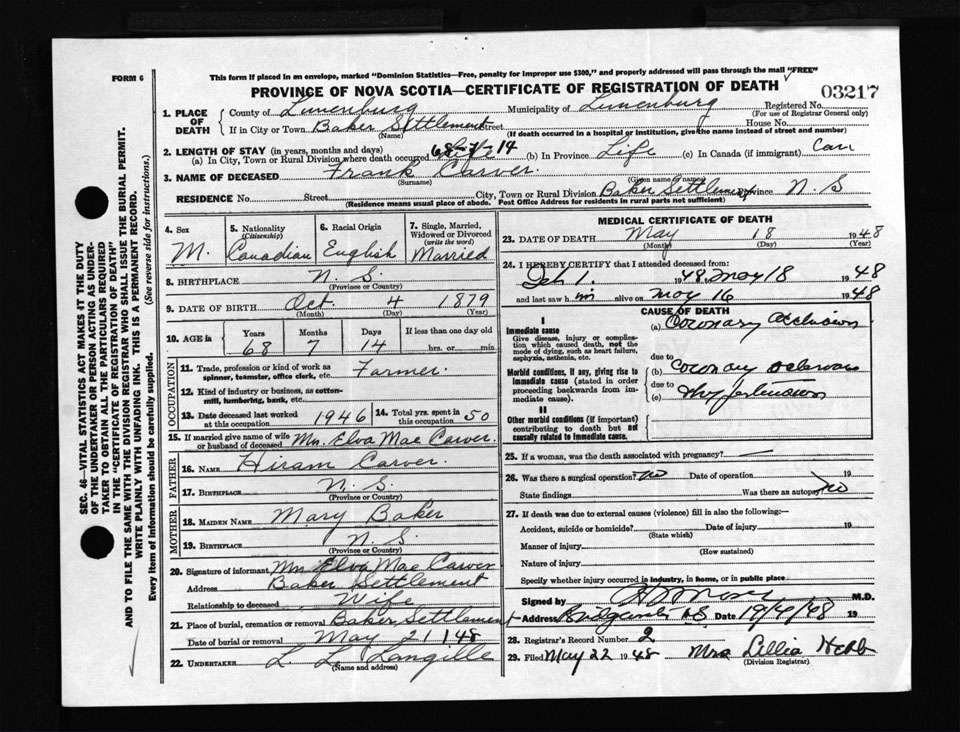 FORM 6
This form if placed in an envelope, marked "Dominion Statistics—Free, penalty for improper use $300," and properly addressed will pass through the mail "FREE"
PROVINCE OF NOVA SCOTIA—CERTIFICATE OF REGISTRATION OF DEATH
03217
1. PLACE OF DEATH
County of Lunenburg Municipality of Lunenburg Registered No.
(For use of Registrar General only)
If in City or Town Baker Settlement Street House No.
(Name) (If death occurred in a hospital or institution, give the name instead of street and number)
2. LENGTH OF STAY (in years, months and days)
(a) In City, Town or Rural Division where death occurred 68 7 14 (b) In Province Life (c) In Canada (if immigrant) Can
3. NAME OF DECEASED Frank Carver.
(Surname) (Given name or names)
RESIDENCE No. Street City, Town or Rural Division Baker Settlement Province N. S
(Residence means usual place of abode. Post Office Address for residents in rural parts not sufficient)
4. Sex
M.
5. Nationality
(Citizenship)
Canadian
6. Racial Origin
English
7. Single, Married, Widowed or Divorced
(write the word)
Married
8. BIRTHPLACE N. S.
(Province or Country)
9. DATE OF BIRTH Oct. 4 1879
(Month) (Day) (Year)
10. AGE in Years Months Days If less than one day old
68 7 14 hrs. or min.
OCCUPATION
11. Trade, profession or kind of work as spinner, teamster, office clerk, etc. Farmer.
12. Kind of industry or business, as cotton-mill, lumbering, bank, etc.
13. Date deceased last worked at this occupation 1946
14. Total yrs. spent in this occupation 50
15. If married give name of wife or husband of deceased Mrs. Elva Mae Carver.
FATHER
16. NAME Hiram Carver.
17. BIRTHPLACE N. S.
(Province or Country)
MOTHER
18. MAIDEN NAME Mary Baker
19. BIRTHPLACE N. S.
(Province or Country)
20. Signature of informant Mrs Elva Mae Carver
Address Baker Settlement
Relationship to deceased Wife
21. Place of burial, cremation or removal Baker Settlement
Date of burial or removal May 21/48
22. UNDERTAKER L. L. Langille
(Name and address)
MEDICAL CERTIFICATE OF DEATH
23. DATE OF DEATH May 18 1948
(Month) (Day) (Year)
24. I HEREBY CERTIFY that I attended deceased from:
1. 1948 May 18 1948
and last saw h im alive on May 16 1948
CAUSE OF DEATH
I
Immediate cause
Give disease, injury or complication which caused death, not the mode of dying, such as heart failure, asphyxia, asthenia, etc.
(a) Coronary occlusion
due to
Morbid conditions, if any, giving rise to immediate cause (stated in order proceeding backwards from immediate cause).
(b) Coronary
due to
(c)
II
Other morbid conditions (if important) contributing to death but not causally related to immediate cause.
25. If a woman, was the death associated with pregnancy? —
26. Was there a surgical operation? no Date of operation 19
State findings Was there an autopsy? no
27. If death was due to external causes (violence) fill in also the following:—
Accident, suicide or homicide? Date of injury 19
(State which)
Manner of injury
(How sustained)
Nature of injury
Specify whether injury occurred in industry, in home, or in public place
Signed by M.D.
Address Bridgewater NS Date 19/4/48 19
28. Registrar's Record Number 2
29. Filed May 22 1948 Mrs Lillia Hebb
(Division Registrar)
SEC. 46—VITAL STATISTICS ACT MAKES IT THE DUTY
OF THE UNDERTAKER OR PERSON ACTING AS UNDERTAKER TO OBTAIN ALL THE PARTICULARS REQUIRED
IN THE "CERTIFICATE OF REGISTRATION OF DEATH"
AND TO FILE THE SAME WITH THE DIVISION REGISTRAR WHO SHALL ISSUE THE BURIAL PERMIT.
WRITE PLAINLY WITH UNFADING INK. THIS IS A PERMANENT RECORD.
Every item of information should be carefully supplied. (See reverse side for instructions.)